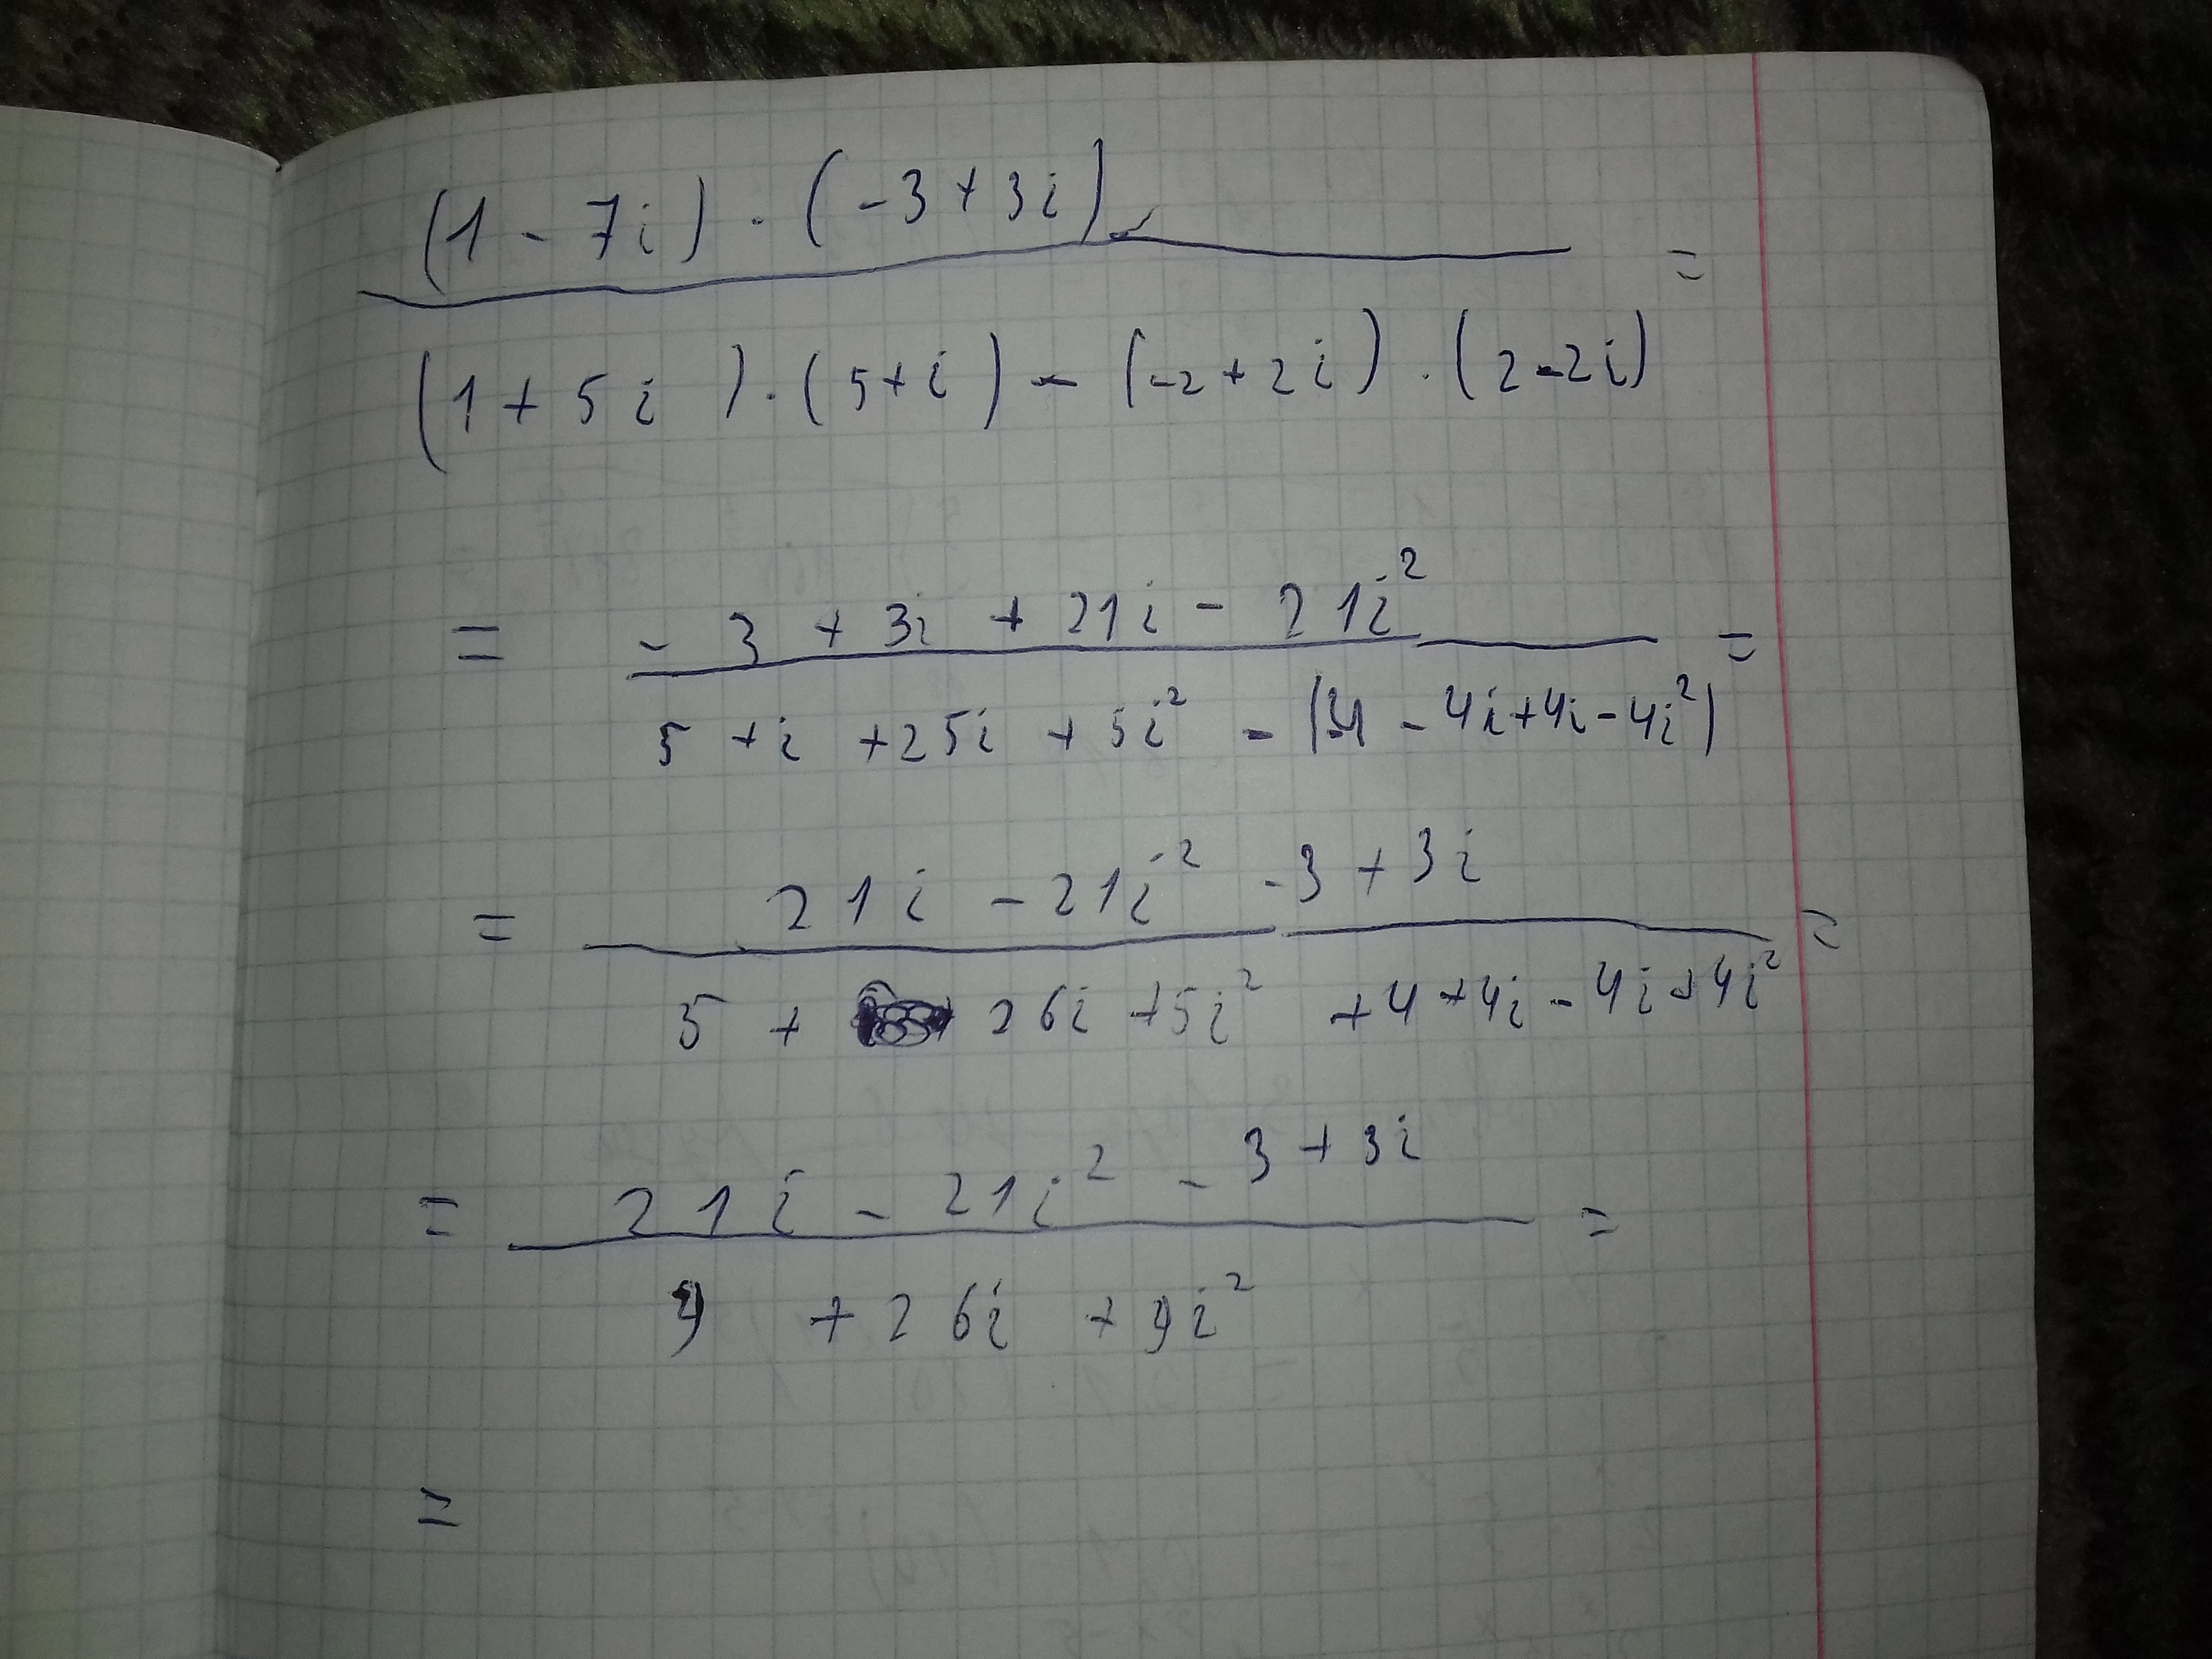 (1 - 7i) · (-3 + 3i)
=
(1 + 5i) · (5 + i) - (-2 + 2i) · (2 - 2i)
= - 3 + 3i + 21i - 21i² =
5 + i + 25i + 5i² - (-4 - 4i + 4i - 4i²)
= 21i - 21i² - 3 + 3i =
5 + 26i + 5i² + 4 + 4i - 4i + 4i²
= 21i - 21i² - 3 + 3i =
9 + 26i + 9i²
=